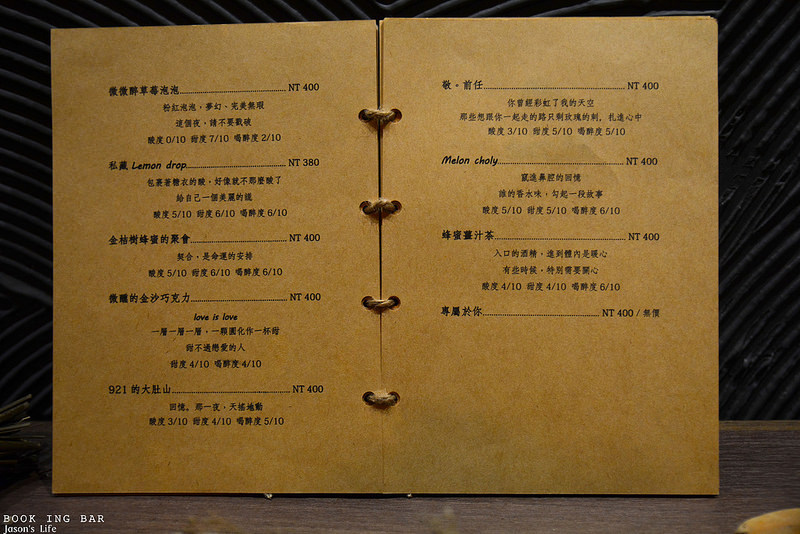 微微醉草莓泡泡........................................ NT 400
粉紅泡泡，夢幻、完美無瑕
這個夜，請不要戳破
酸度 0/10 甜度 7/10 喝醉度 2/10
私藏 Lemon drop..................................... NT 380
包裹著糖衣的酸，好像就不那麼酸了
給自己一個美麗的謊
酸度 5/10 甜度 6/10 喝醉度 6/10
金桔樹蜂蜜的聚會..................................... NT 400
契合，是命運的安排
酸度 5/10 甜度 6/10 喝醉度 6/10
微醺的金沙巧克力..................................... NT 400
love is love
一層一層一層，一顆圓化作一杯甜
甜不過戀愛的人
甜度 4/10 喝醉度 4/10
921 的大肚山........................................... NT 400
回憶。那一夜，天搖地動
酸度 3/10 甜度 4/10 喝醉度 5/10
敬。前任..................................................... NT 400
你曾經彩虹了我的天空
那些想跟你一起走的路只剩玫瑰的刺。扎進心中
酸度 3/10 甜度 5/10 喝醉度 5/10
Melon choly.............................................. NT 400
竄進鼻腔的回憶
誰的香水味，勾起一段故事
酸度 5/10 甜度 5/10 喝醉度 5/10
蜂蜜薑汁茶................................................ NT 400
入口的酒精，進到體內是暖心
有些時候，特別需要關心
酸度 4/10 甜度 4/10 喝醉度 6/10
專屬於你............................................ NT 400 / 無價
BOOK ING BAR
Jason's Life